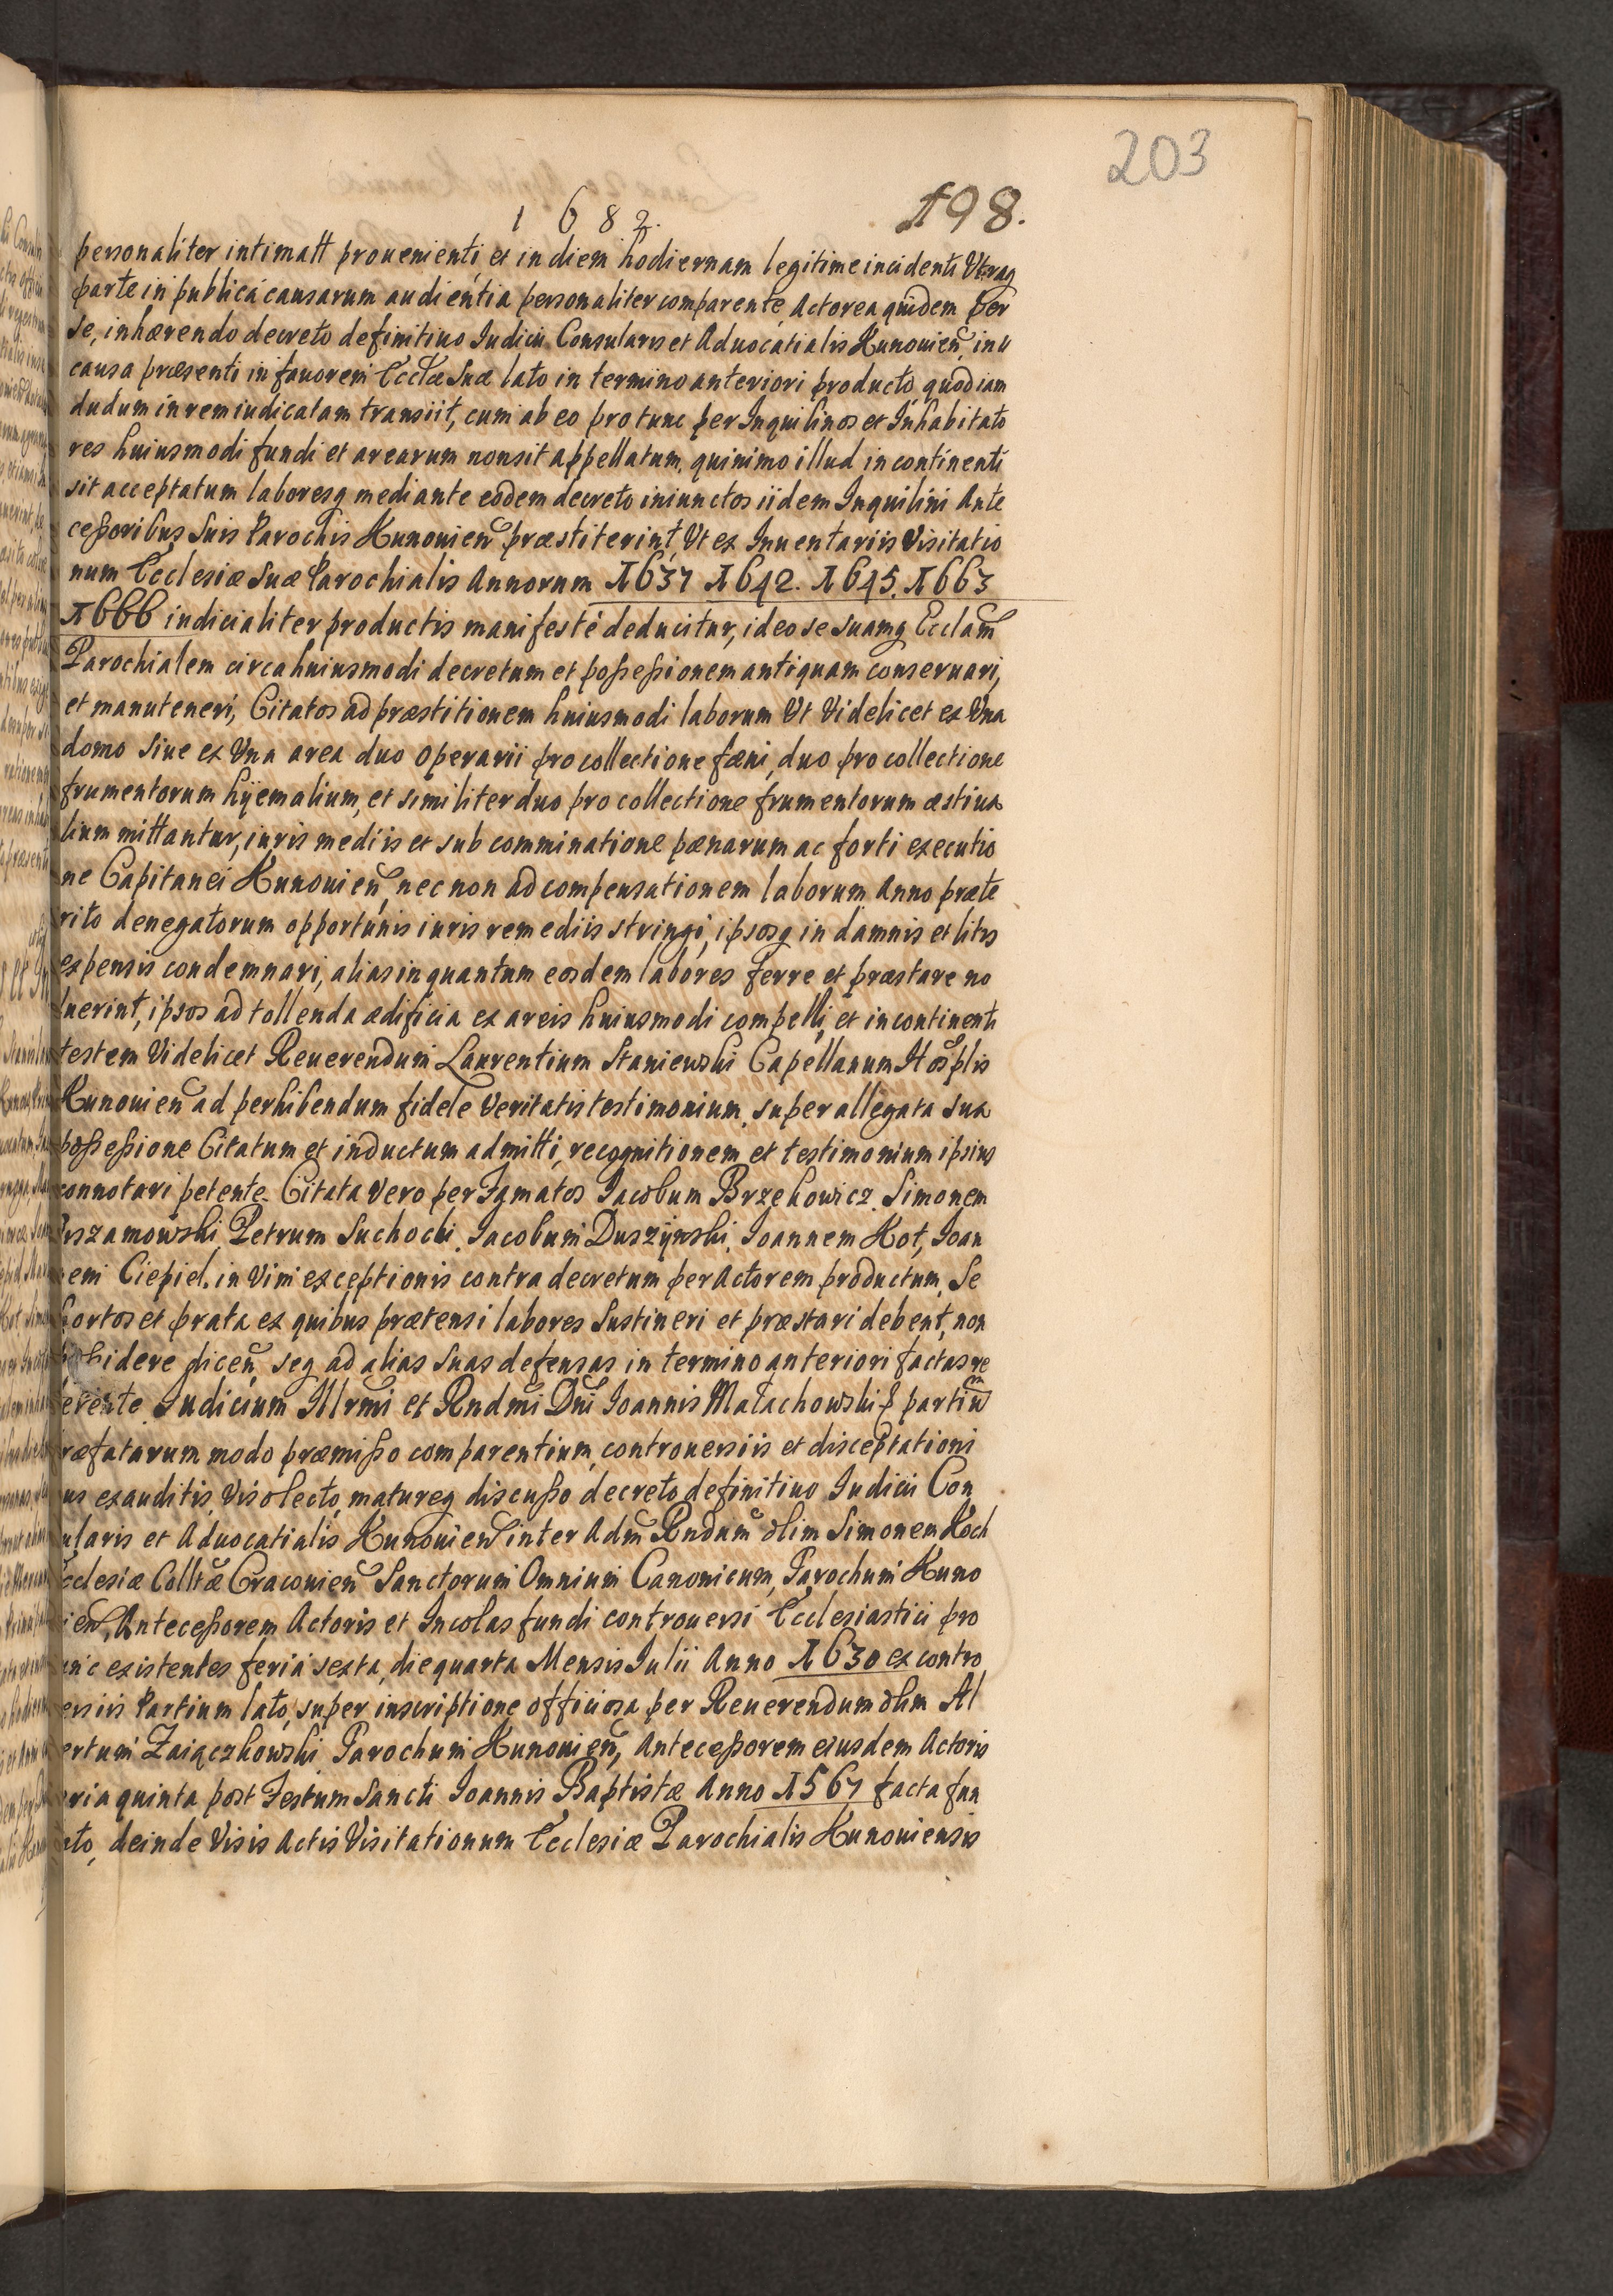 203
1682. 198.
personaliter intimatt prouenienti et in diem hodiernam legitime incidenti Vtraq
parte in publica causarum audientia personaliter comparente, Actorea quidem per
se, inhærendo decreto definitiuo Iudicii Consularis et Aduocatialis Kunouien, in
causa præsenti in fauorem Ecclæ Suæ lato in termino anteriori producto, quod iam
dudum in rem iudicatam transiit, cum ab eo pro tunc per Inquilinos et Inhabitato
res huiusmodi fundi et arearum non sit appellatum, quinimo illud in continenti
sit acceptatum laboresq mediante eodem decreto iniunctos iidem Inquilini Ante
ceßoribus Suis Parochis Kunouien præstiterint, Vt ex Inuentariis Visitatio
num Ecclesiæ Suæ Parochialis Annorum 1637 1642. 1645. 1663
1666 iudicialiter productis manifesté deducitur, ideo se suamq Ecclam
Parochialem circa huiusmodi decretum et poßeßionem antiquam conseruari,
et manuteneri, Citatos ad præstitionem huiusmodi laborum Vt Videlicet ex Vna
domo siue ex Vna area duo operarii pro collectione fæni, duo pro collectione
frumentorum hÿemalium, et similiter duo pro collectione frumentorum æstiua
lium mittantur, iuris mediis et sub comminatione pænarum ac forti executio
ne Capitanei Kunouien, nec non ad compensationem laborum Anno præte
rito denegatorum opportunis iuris remediis stringi, ipsosq in damnis et litis
expensis condemnari, alias in quantum eosdem labores ferre et præstare no
luerint, ipsos ad tollenda ædificia ex areis huiusmodi compelli, et in continenti
testem Videlicet Reuerendum Laurentium Staniewski Capellanum Hosplis
Kunouien ad perhibendum fidele Veritatis testimonium, super allegata sua
poßeßione Citatum et inductum admitti, recognitionem et testimonium ipsius
connotari petente. Citata Vero per Famatos Iacobum Brzehowicz. Simonem
szamowski Petrum Suchocki, Iacobum Duszÿnski, Ioannem Kot, Ioan
nem Ciepiel, in Vim exceptionis contra decretum per Actorem productum, Se
hortos et prata ex quibus prætensi labores Sustineri et præstari debent, non
poßidere dicen, seq ad alias suas defensas in termino anteriori factas re
ferente. Iudicium Illrmi et Rndmi Dni Ioannis Małachowski p partium
præfatarum modo præmißo comparentium, controuersiis et disceptationi
bus exauditis, Viso lecto, matureq discußo decreto definitiuo Iudicii Con
sularis et Aduocatialis Kunouien inter Adm Rndum olim Simonem Koch
Ecclesiæ Colltæ Cracouien Sanctorum Omnium Canonicum, Parochum Kuno
uien, Anteceßorem Actoris et Incolas fundi controuersi Ecclesiastici pro
tunc existentes feria sexta, die quarta Mensis Iulii Anno 1630 ex contro
uersiis Partium lato, super inscriptione officiosa per Reuerendum olim Al
bertum Zaiączkowski Parochum Kunouien, Anteceßorem eiusdem Actoris
feria quinta post Festum Sancti Ioannis Baptistæ Anno 1567 facta fun
dato, deinde Visis Actis Visitationum Ecclesiæ Parochialis Kunouiensis